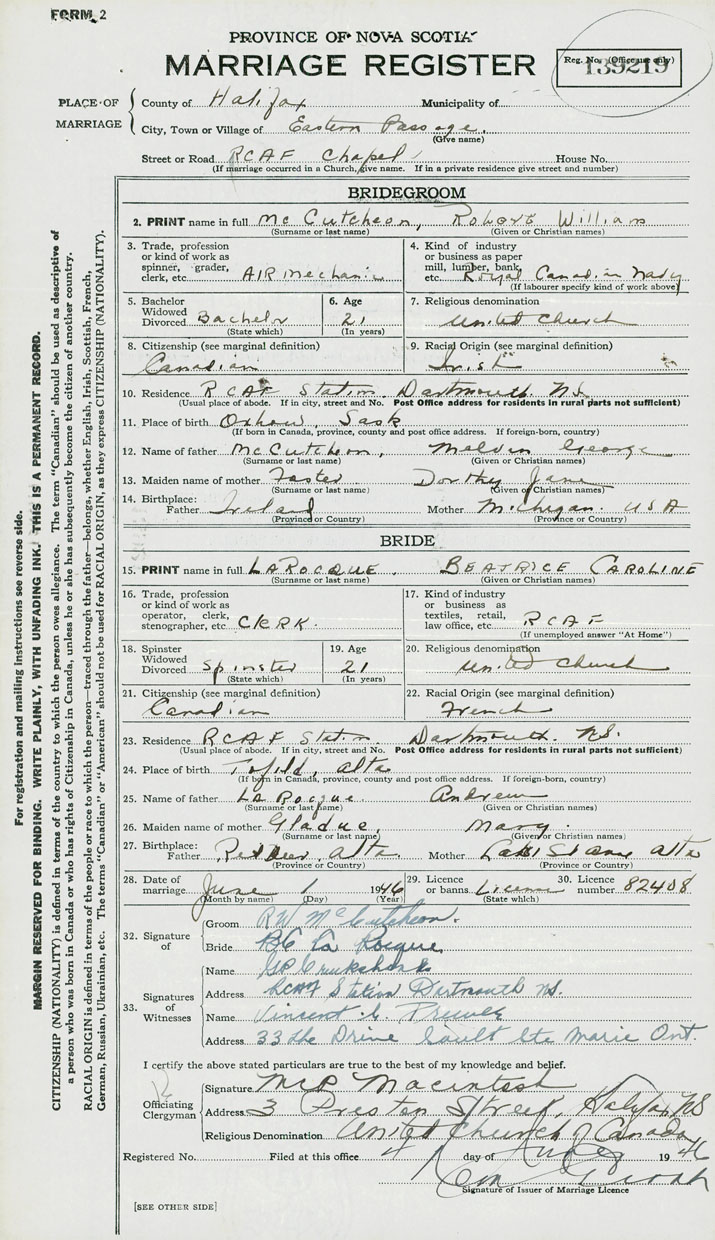 FORM 2
PROVINCE OF NOVA SCOTIA
MARRIAGE REGISTER
Reg. No. (Office use only)
139219
PLACE OF MARRIAGE
County of Halifax Municipality of
City, Town or Village of Eastern Passage.
(Give name)
Street or Road RCAF Chapel House No.
(If marriage occurred in a Church, give name. If in a private residence give street and number)
BRIDEGROOM
2. PRINT name in full McCutcheon, Robert William
(Surname or last name) (Given or Christian names)
3. Trade, profession or kind of work as spinner, grader, clerk, etc. AIR Mechanic
4. Kind of industry or business as paper mill, lumber, bank, etc. Royal Canadian Navy
(If labourer specify kind of work above)
5. Bachelor Widowed Divorced Bachelor
(State which)
6. Age 21
(In years)
7. Religious denomination
United Church
8. Citizenship (see marginal definition)
Canadian
9. Racial Origin (see marginal definition)
Irish
10. Residence RCAF Station, Dartmouth NS
(Usual place of abode. If in city, street and No. Post Office address for residents in rural parts not sufficient)
11. Place of birth Oxbow, Sask
(If born in Canada, province, county and post office address. If foreign-born, country)
12. Name of father McCutcheon, Melvin George
(Surname or last name) (Given or Christian names)
13. Maiden name of mother Foster Dorothy Jane
(Surname or last name) (Given or Christian names)
14. Birthplace:
Father Ireland Mother Michigan. USA
(Province or Country) (Province or Country)
BRIDE
15. PRINT name in full LAROCQUE, BEATRICE CAROLINE
(Surname or last name) (Given or Christian names)
16. Trade, profession or kind of work as operator, clerk, stenographer, etc. CLERK.
17. Kind of industry or business as textiles, retail, law office, etc. RCAF
(If unemployed answer "At Home")
18. Spinster Widowed Divorced Spinster
(State which)
19. Age 21
(In years)
20. Religious denomination
United Church
21. Citizenship (see marginal definition)
Canadian
22. Racial Origin (see marginal definition)
French
23. Residence RCAF Station Dartmouth. NS.
(Usual place of abode. If in city, street and No. Post Office address for residents in rural parts not sufficient)
24. Place of birth Tofield, Alta
(If born in Canada, province, county and post office address. If foreign-born, country)
25. Name of father LA Rocque Andrew
(Surname or last name) (Given or Christian names)
26. Maiden name of mother Gladue Mary.
(Surname or last name) (Given or Christian names)
27. Birthplace:
Father Red Deer Alta. Mother Alta
(Province or Country) (Province or Country)
28. Date of marriage June 1 1946
(Month by name) (Day) (Year)
29. Licence or banns License
(State which)
30. Licence number 82408
32. Signature of
Groom RW McCutcheon.
Bride BC La Rocque
33. Signatures of Witnesses
Name GP Cruikshank
Address RCAF Station Dartmouth NS.
Name Vincent
Address 33 the Drive Sault Ste Marie Ont.
I certify the above stated particulars are true to the best of my knowledge and belief.
Officiating Clergyman
Signature Macintosh
Address 3 Preston Street, Halifax NS
Religious Denomination United Church of Canada
Registered No. Filed at this office 4 day of 1946
Signature of Issuer of Marriage Licence
[SEE OTHER SIDE]
For registration and mailing instructions see reverse side.
MARGIN RESERVED FOR BINDING. WRITE PLAINLY, WITH UNFADING INK. THIS IS A PERMANENT RECORD.
CITIZENSHIP (NATIONALITY) is defined in terms of the country to which the person owes allegiance. The term "Canadian" should be used as descriptive of
a person who was born in Canada or who has rights of Citizenship in Canada, unless he or she has subsequently become the citizen of another country.
RACIAL ORIGIN is defined in terms of the people or race to which the person—traced through the father—belongs, whether English, Irish, Scottish, French,
German, Russian, Ukrainian, etc. The terms "Canadian" or "American" should not be used for RACIAL ORIGIN, as they express CITIZENSHIP (NATIONALITY).